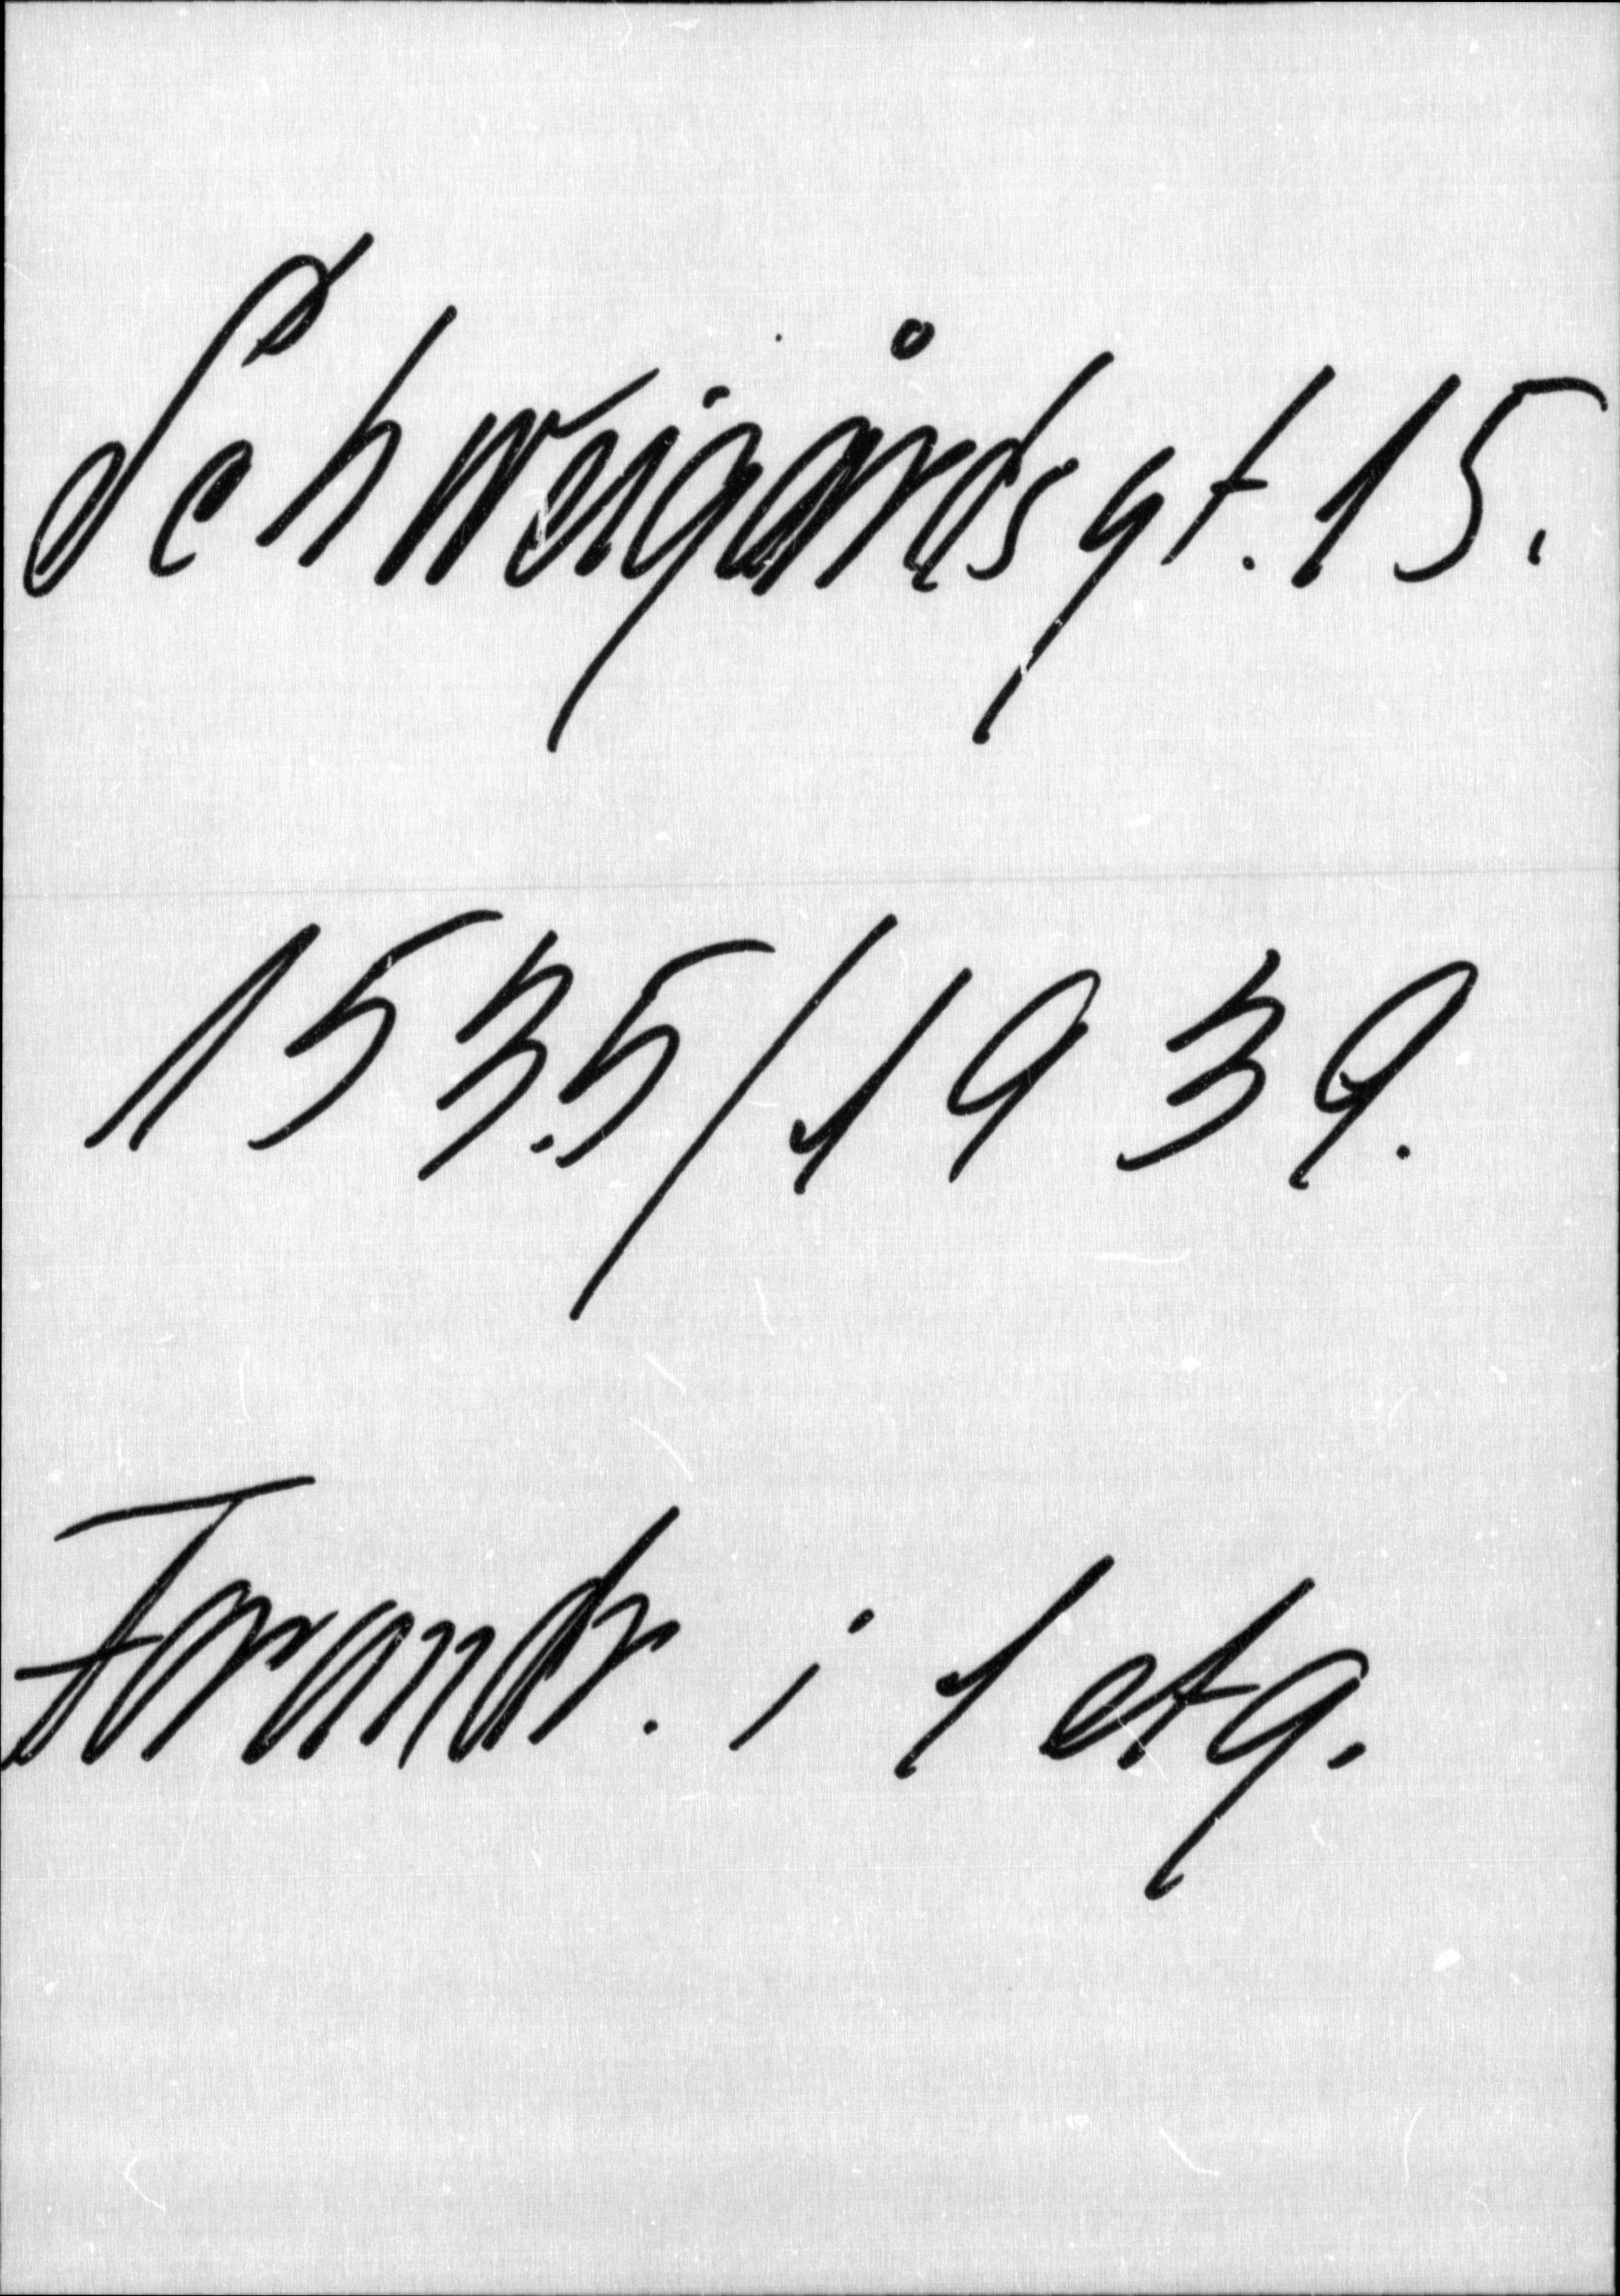 Schweigårdsgt. 15.
1535/1939.
Forandr. i 1 etg.